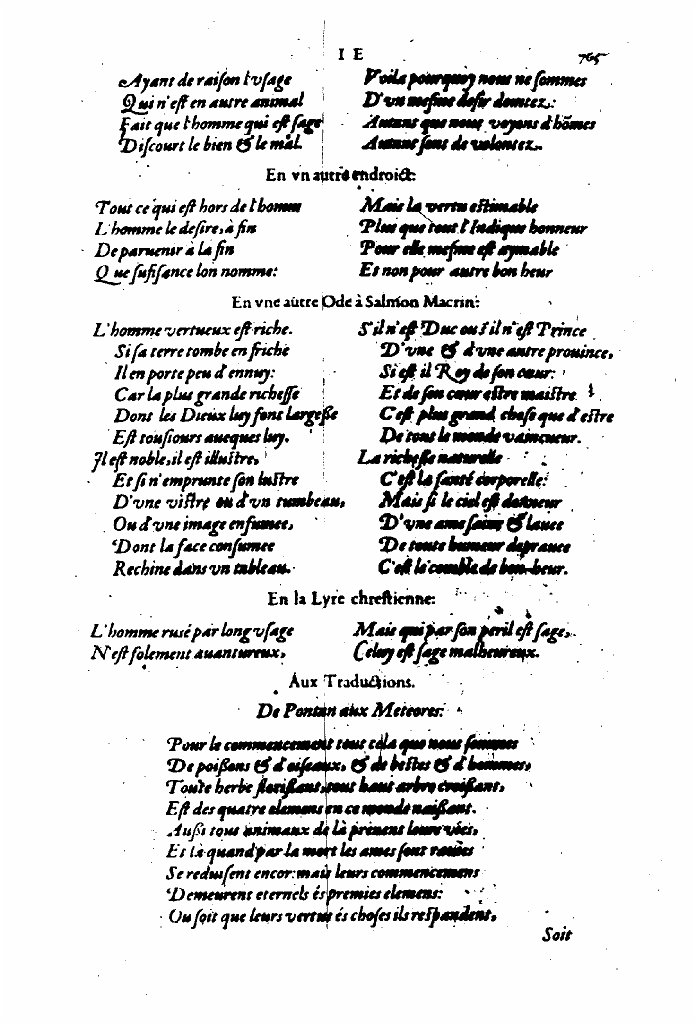 I E
765
Ayant de raiſon l'vſage
Qui n'eſt en autre animal
Fait que l'homme qui eſt ſage
Diſcourt le bien & le mal.
Voila pourquoy nous ne ſommes
D'vn meſme deſir domtez:
Autant que nous voyons d'hōmes
Autant ſont de volontez.
En vn autre endroict:
Tout ce qui eſt hors de l'homme
L'homme le deſire, à fin
De paruenir à la fin
Que ſufiſance lon nomme:
Mais la vertu eſtimable
Plus que tout l'Indique honneur
Pour elle meſme eſt aymable
Et non pour autre bon heur
En vne autre Ode à Salmon Macrin:
L'homme vertueux eſt riche.
Si ſa terre tombe en friche
Il en porte peu d'ennuy:
Car la plus grande richeſſe
Dont les Dieux luy font largeſſe
Eſt touſiours auecques luy.
Il eſt noble, il eſt illuſtre,
Et ſi n'emprunte ſon luſtre
D'vne viſtre ou d'vn tumbeau,
Ou d'vne image enfumee,
Dont la face conſumee
Rechine dans vn tableau.
S'il n'eſt Duc ou s'il n'eſt Prince
D'vne & d'vne autre prouince,
Si eſt il Roy de ſon cœur:
Et de ſon cœur eſtre maiſtre
C'eſt plus grand choſe que d'eſtre
De tout le monde vainqueur.
La richeſſe naturelle
C'eſt la ſanté corporelle:
Mais ſi le ciel eſt donneur
D'vne ame ſaine & lauee
De toute humeur deprauee
C'eſt le comble de bon-heur.
En la Lyre chreſtienne:
L'homme ruſé par long vſage
N'eſt ſolement auantureux,
Mais qui par ſon peril eſt ſage,
Celuy eſt ſage malheureux.
Aux Traductions.
De Pontan aux Meteores:
Pour le commencement tout cela que nous ſommes
De poiſſons & d'oiſeaux, & de beſtes & d'hommes,
Toute herbe floriſſant, tout haut arbre croiſſant,
Eſt des quatre elemens en ce monde naiſſant.
Auſsi tous animaux de là prenent leurs vies,
Et là quand par la mort les ames ſont rauies
Se reduiſent encor: mais leurs commencemens
Demeurent eternels és premies elemens:
Ou ſoit que leurs vertus és choſes ils reſpandent,
Soit